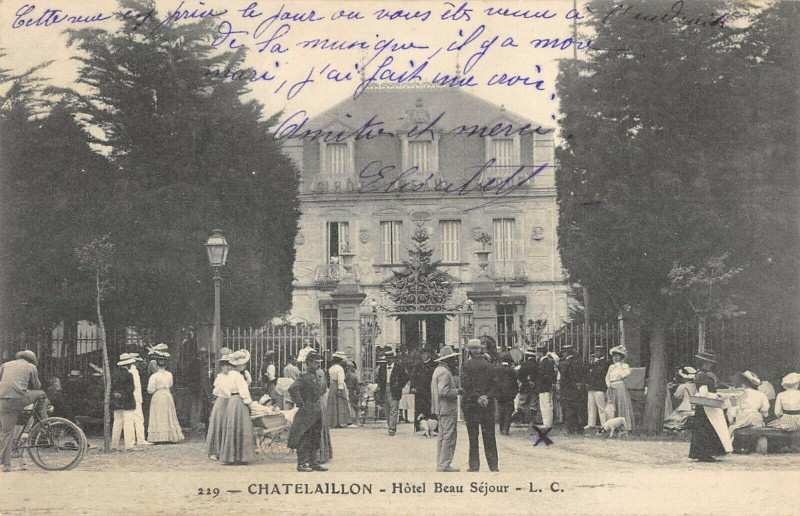 Cette vue est prise le jour ou vous êtes venu à l'endroit
de la musique, il y a mon
mari, j'ai fait une croix
Amitié et merci
Elisabeth
229 — CHATELAILLON - Hôtel Beau Séjour - L. C.